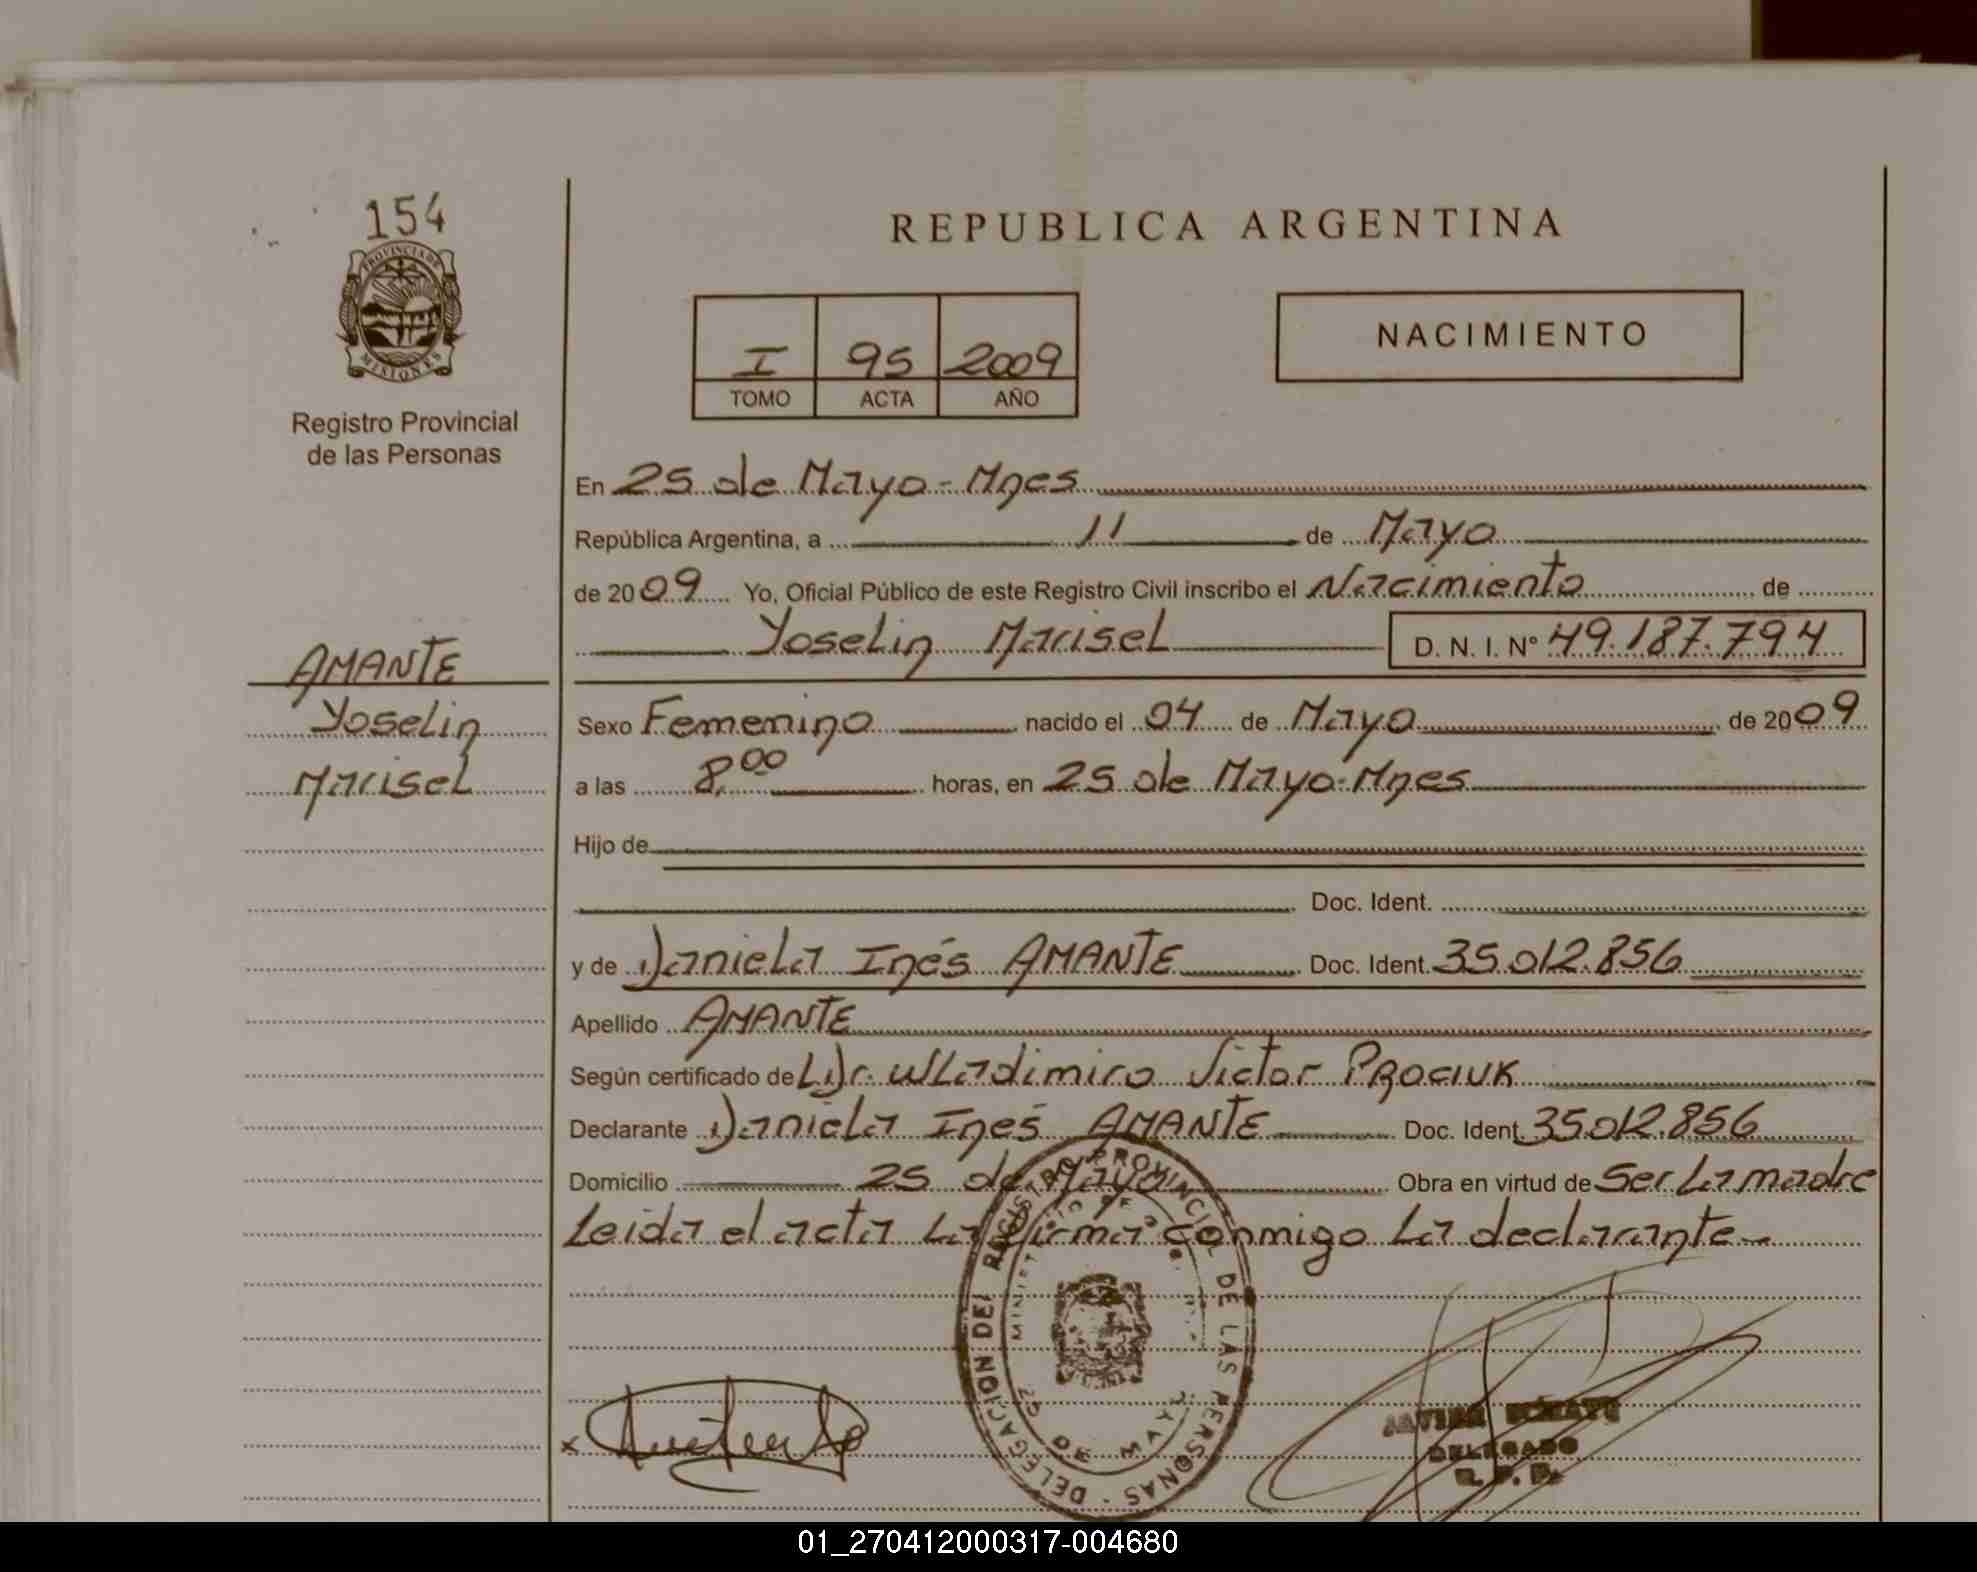 154
REPUBLICA ARGENTINA
PROVINCIA DE
MISIONES
Registro Provincial
de las Personas
I 95 2009
TOMO ACTA AÑO
NACIMIENTO
En 25 de Mayo - Mnes
República Argentina, a 11 de Mayo
de 2009 Yo, Oficial Público de este Registro Civil inscribo el Nacimiento de
Yoselin Marisel D. N. I. Nº 49.187.794
AMANTE
Yoselin
Marisel
Sexo Femenino nacido el 04 de Mayo de 2009
a las 8,00 horas, en 25 de Mayo-Mnes
Hijo de
Doc. Ident.
y de Daniela Inés AMANTE Doc. Ident. 35.012.856
Apellido AMANTE
Según certificado de Dr. Wladimiro Victor PROCIUK
Declarante Daniela Inés AMANTE Doc. Ident. 35.012.856
Domicilio 25 de Mayo Obra en virtud de Ser La madre
Leida el acta La firma conmigo La declarante
DELEGACION DEL REGISTRO PROVINCIAL DE LAS PERSONAS
25 DE MAYO
DELEGADO
R. P. P.
01_270412000317-004680